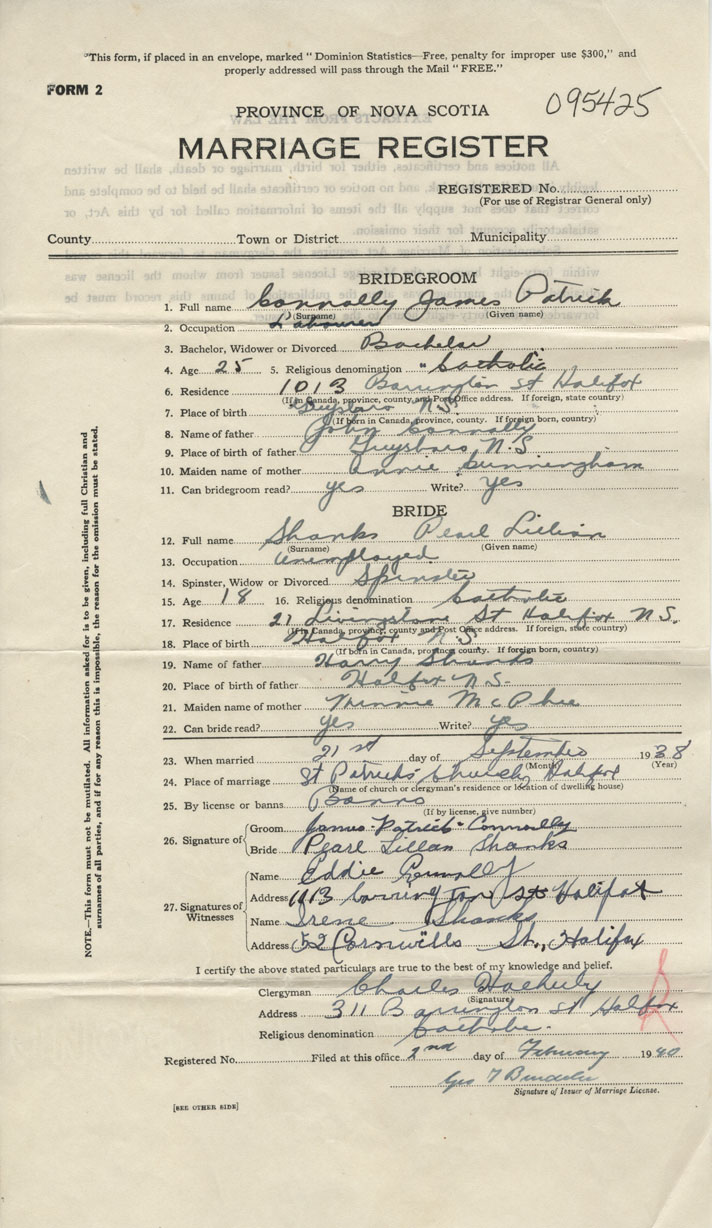 "This form, if placed in an envelope, marked "Dominion Statistics—Free, penalty for improper use $300," and
properly addressed will pass through the Mail "FREE."
FORM 2
095425
PROVINCE OF NOVA SCOTIA
MARRIAGE REGISTER
REGISTERED No.
(For use of Registrar General only)
County Town or District Municipality
BRIDEGROOM
1. Full name Connolly James Patrick
(Surname) (Given name)
2. Occupation Labourer
3. Bachelor, Widower or Divorced Bachelor
4. Age 25 5. Religious denomination Catholic
6. Residence 1013 Barrington St Halifax
(If in Canada, province, county and Post Office address. If foreign, state country)
7. Place of birth Guysboro N.S.
(If born in Canada, province, county. If foreign born, country)
8. Name of father John Connolly
9. Place of birth of father Guysboro N.S
10. Maiden name of mother Annie Cunningham
11. Can bridegroom read? yes Write? yes
BRIDE
12. Full name Shanks Pearl Lillian
(Surname) (Given name)
13. Occupation Unemployed
14. Spinster, Widow or Divorced Spinster
15. Age 18 16. Religious denomination Catholic
17. Residence 21 Livingstone St Halifax N.S.
(If in Canada, province, county and Post Office address. If foreign, state country)
18. Place of birth Halifax N.S.
(If born in Canada, province, county. If foreign born, country)
19. Name of father Harry Shanks
20. Place of birth of father Halifax N.S.
21. Maiden name of mother Minnie McPhee
22. Can bride read? yes Write? yes
23. When married 21st day of September 1938
(Month) (Year)
24. Place of marriage St Patricks Church, Halifax
(Name of church or clergyman's residence or location of dwelling house)
25. By license or banns Banns
(If by license, give number)
26. Signature of Groom James Patrick Connolly
Bride Pearl Lillian Shanks
27. Signatures of Witnesses
Name Eddie Connolly
Address 1013 Barrington St Halifax
Name Irene Shanks
Address 52 Cornwells St., Halifax
I certify the above stated particulars are true to the best of my knowledge and belief.
Clergyman Charles
(Signature)
Address 311 Barrington St Halifax
Religious denomination Catholic.
Registered No. Filed at this office 2nd day of February 1940
Geo
Signature of Issuer of Marriage License.
[SEE OTHER SIDE]
NOTE.—This form must not be mutilated. All information asked for is to be given, including full Christian and
surnames of all parties, and if for any reason this is impossible, the reason for the omission must be stated.